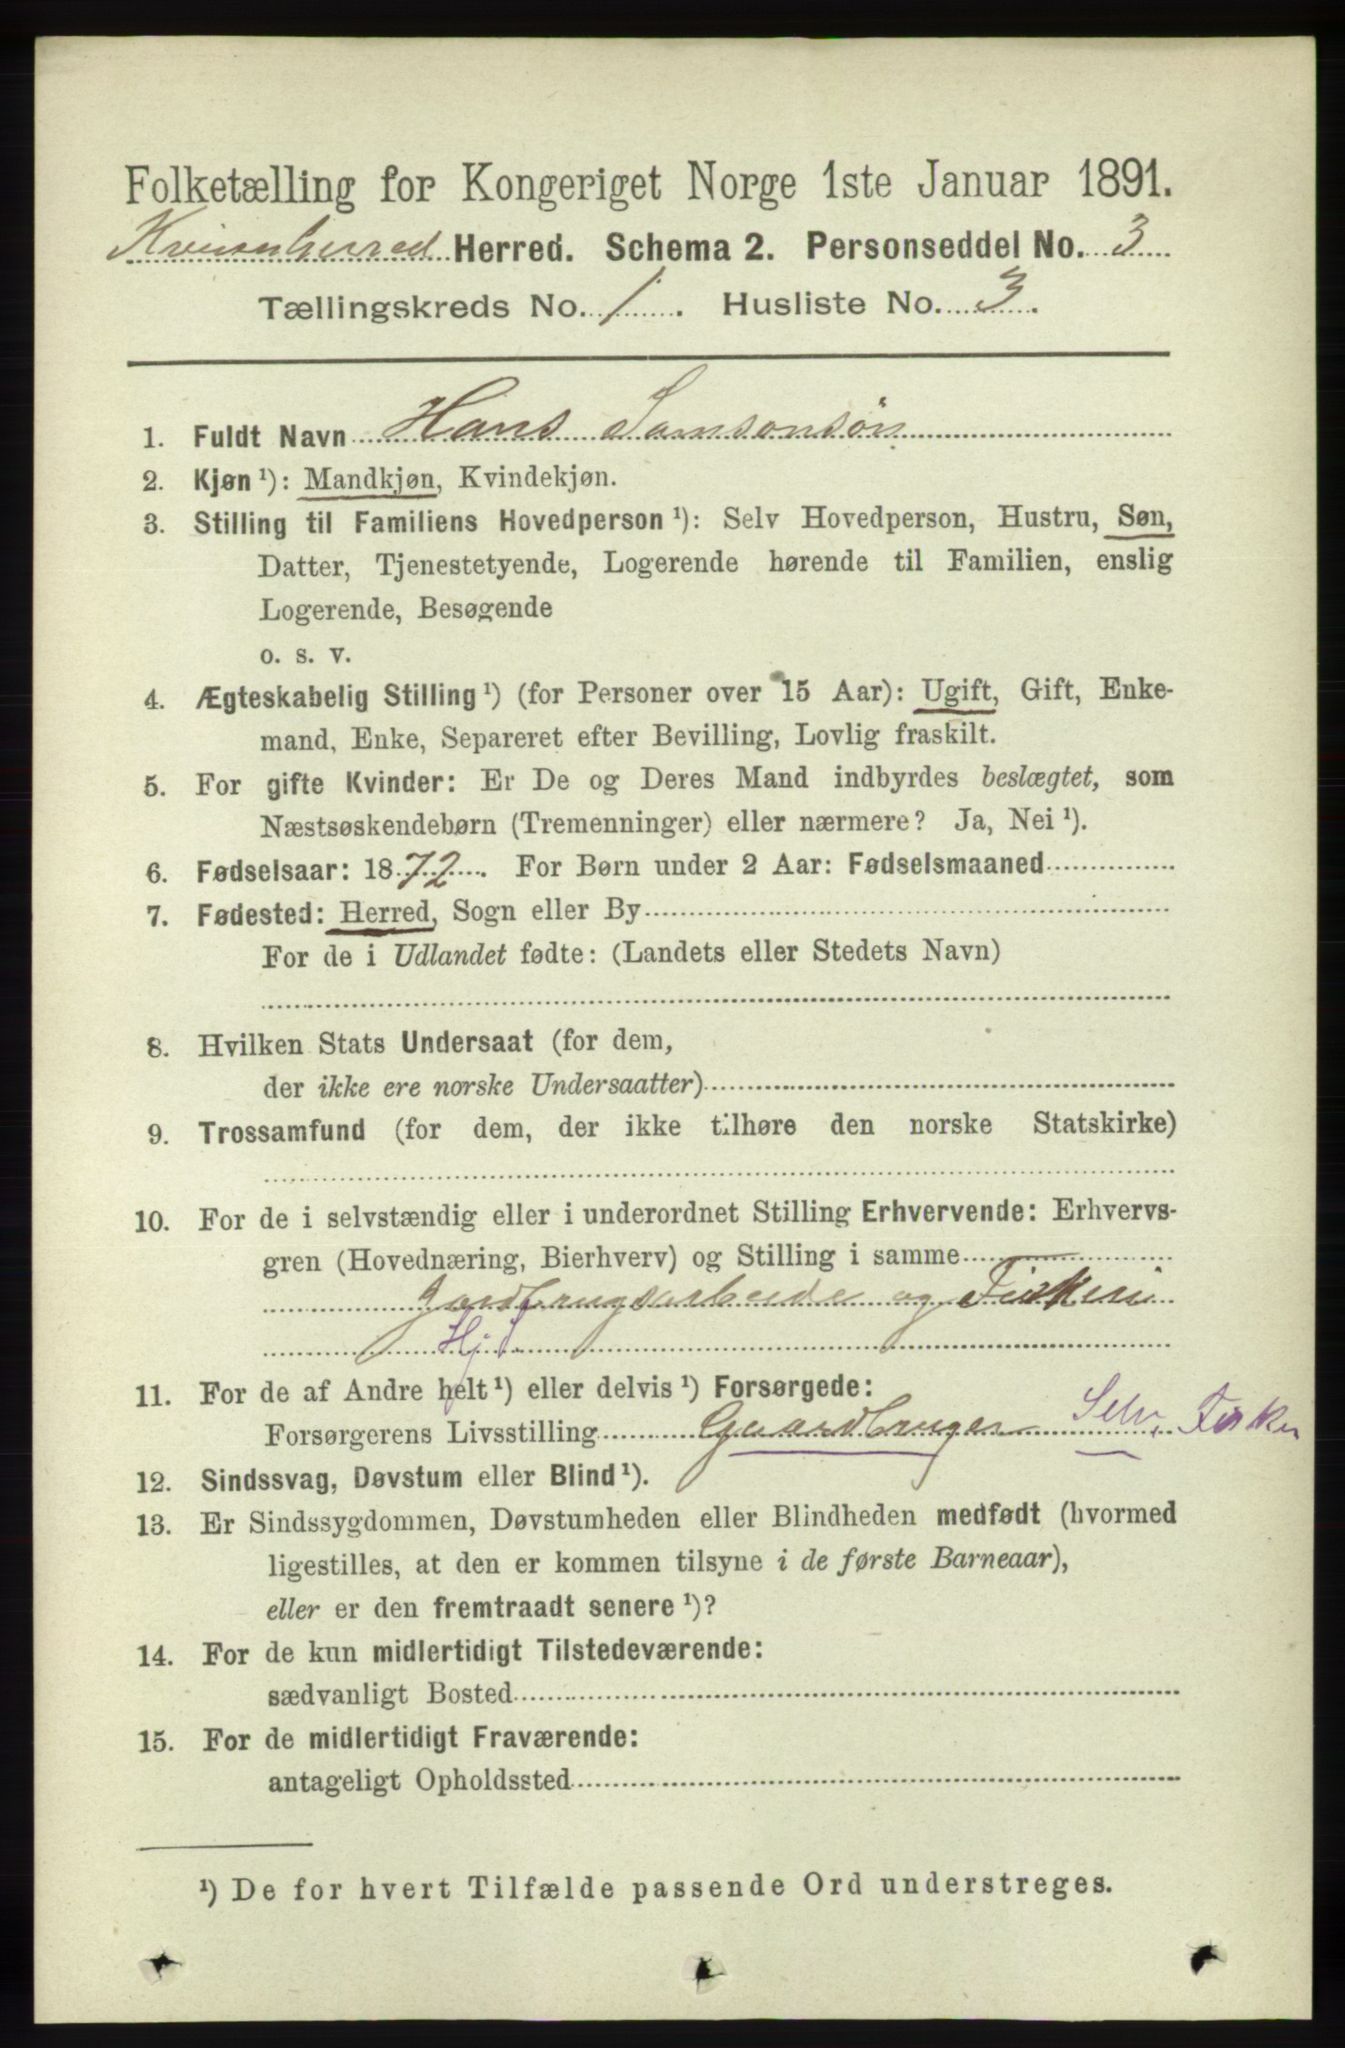 Folketælling for Kongeriget Norge 1ste Januar 1891.
Kvinnherred Herred. Schema 2. Personseddel No. 3
Tællingskreds No. 1. Husliste No. 3.
1. Fuldt Navn Hans Samsonsøn
2. Kjøn ¹): Mandkjøn, Kvindekjøn.
3. Stilling til Familiens Hovedperson ¹): Selv Hovedperson, Hustru, Søn,
Datter, Tjenestetyende, Logerende hørende til Familien, enslig
Logerende, Besøgende
o. s. v.
4. Ægteskabelig Stilling ¹) (for Personer over 15 Aar): Ugift, Gift, Enke-
mand, Enke, Separeret efter Bevilling, Lovlig fraskilt.
5. For gifte Kvinder: Er De og Deres Mand indbyrdes beslægtet, som
Næstsøskendebørn (Tremenninger) eller nærmere? Ja, Nei ¹).
6. Fødselsaar: 1872. For Børn under 2 Aar: Fødselsmaaned
7. Fødested: Herred, Sogn eller By
For de i Udlandet fødte: (Landets eller Stedets Navn)
8. Hvilken Stats Undersaat (for dem,
der ikke ere norske Undersaatter)
9. Trossamfund (for dem, der ikke tilhøre den norske Statskirke)
10. For de i selvstændig eller i underordnet Stilling Erhvervende: Erhvervs-
gren (Hovednæring, Bierhverv) og Stilling i samme
Gardbrugsarbeide og Fiskeri
Hj
11. For de af Andre helt ¹) eller delvis ¹) Forsørgede:
Forsørgerens Livsstilling Gaardbruger Selv. Fisker
12. Sindssvag, Døvstum eller Blind ¹).
13. Er Sindssygdommen, Døvstumheden eller Blindheden medfødt (hvormed
ligestilles, at den er kommen tilsyne i de første Barneaar),
eller er den fremtraadt senere ¹)?
14. For de kun midlertidigt Tilstedeværende:
sædvanligt Bosted
15. For de midlertidigt Fraværende:
antageligt Opholdssted
¹) De for hvert Tilfælde passende Ord understreges.